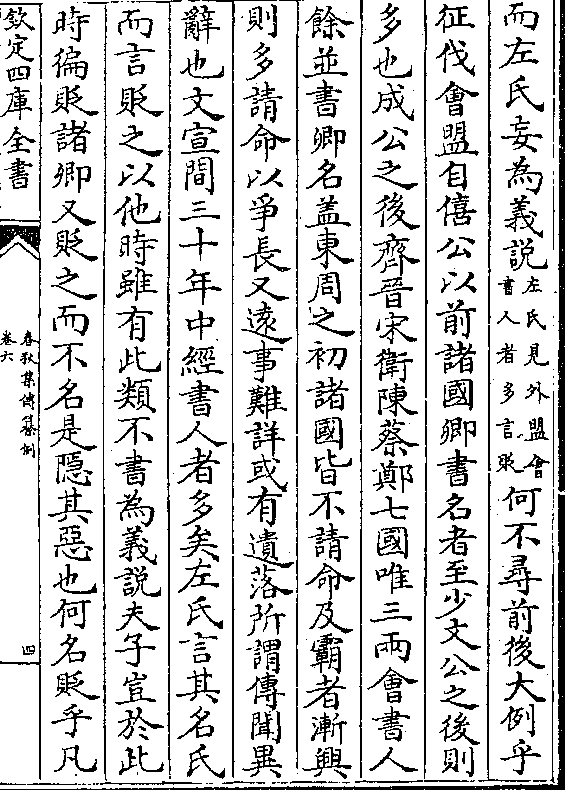 而左氏妄為義說左氏見外盟會書人者多言貶何不尋前後大例乎
征伐會盟自僖公以前諸國卿書名者至少文公之後則
多也成公之後齊晉宋衛陳蔡鄭七國唯三兩會書人
餘並書卿名盖東周之初諸國皆不請命及霸者漸興
則多請命以爭長又遠事難詳或有遺落所謂傳聞異
辭也文宣間三十年中經書人者多矣左氏言其名氏
而言貶之以他時雖有此類不書為義說夫子豈於此
時徧貶諸卿又貶之而不名是隠其惡也何名貶乎凡
欽定四庫全書
春秋集傳纂例
卷六
四